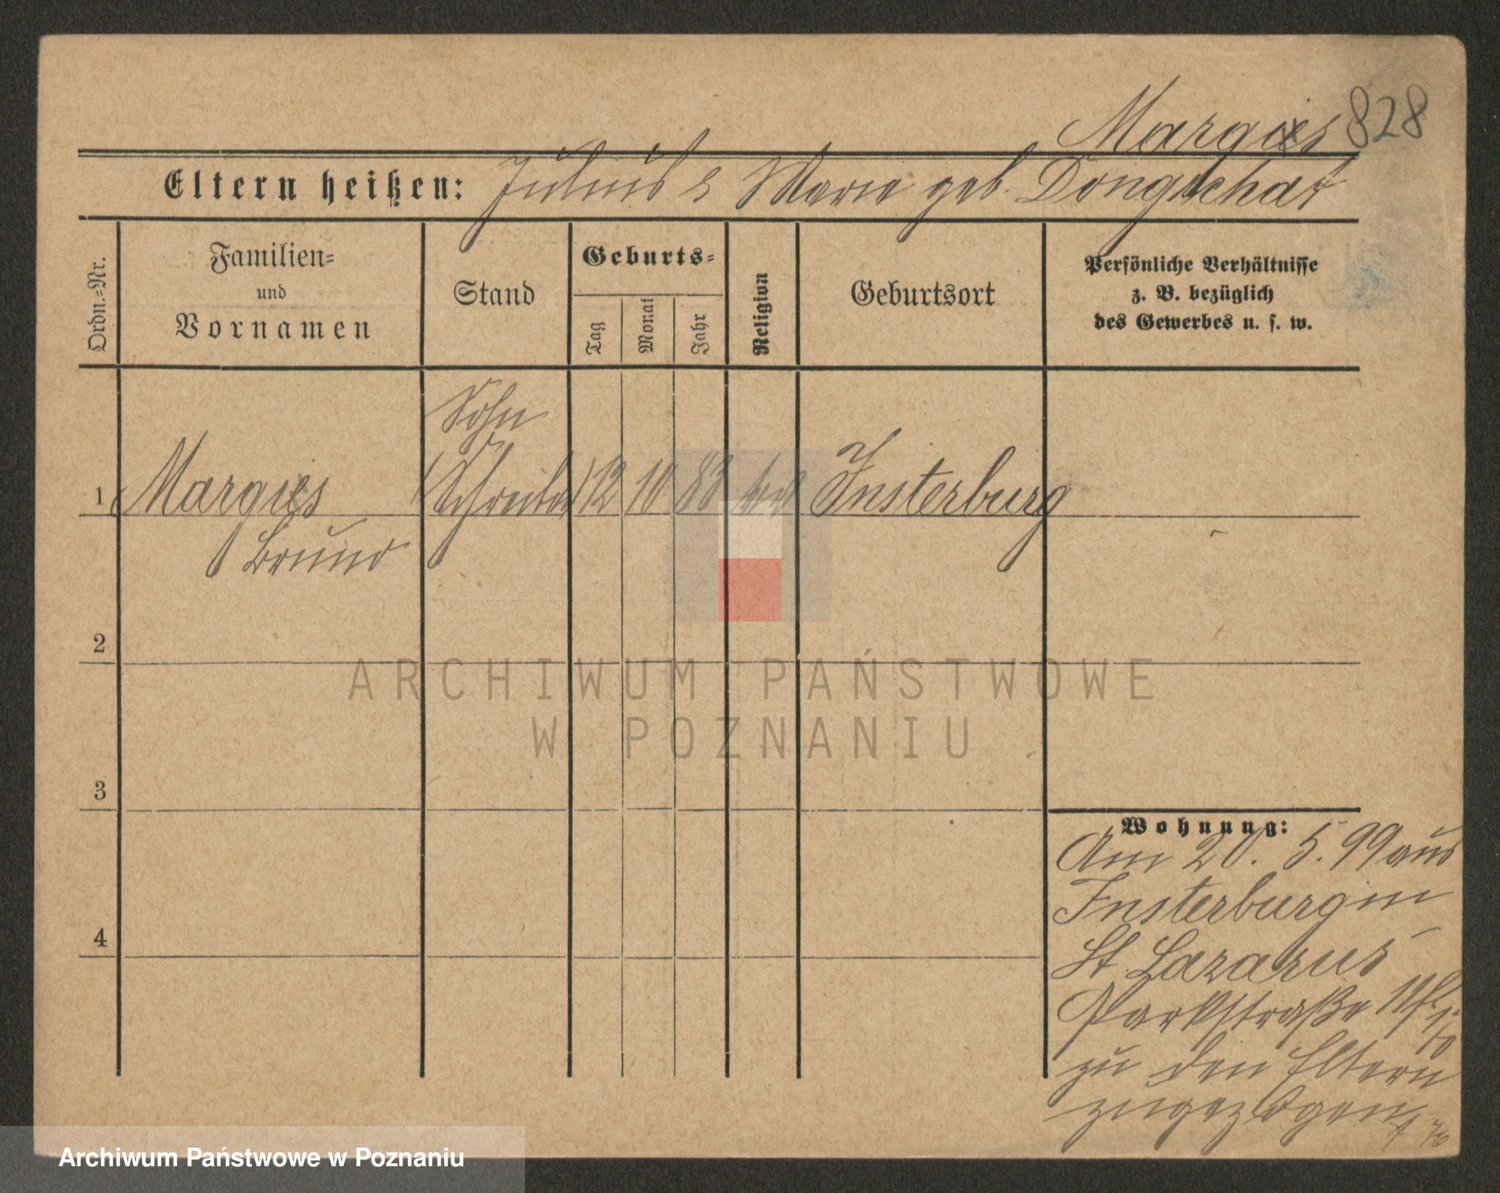 Margies 828
Eltern heißen: Julius & Marie geb.
Ordn.=Nr.
Familien=
und
Vornamen
Stand
Geburts=
Tag
Monat
Jahr
Religion
Geburtsort
Persönliche Verhältnisse
z. B. bezüglich
des Gewerbes u. s. w.
Sohn
1 Margies (Schreiber) 12 10 83 Insterburg
Bruno
2
ARCHIWUM PAŃSTWOWE
W POZNANIU
3
Wohnung:
Am 20. 5. 99 aus
Insterburg in
St Lazarus
Parkstraße 11
zu den Eltern
zugezogen
4
Archiwum Państwowe w Poznaniu